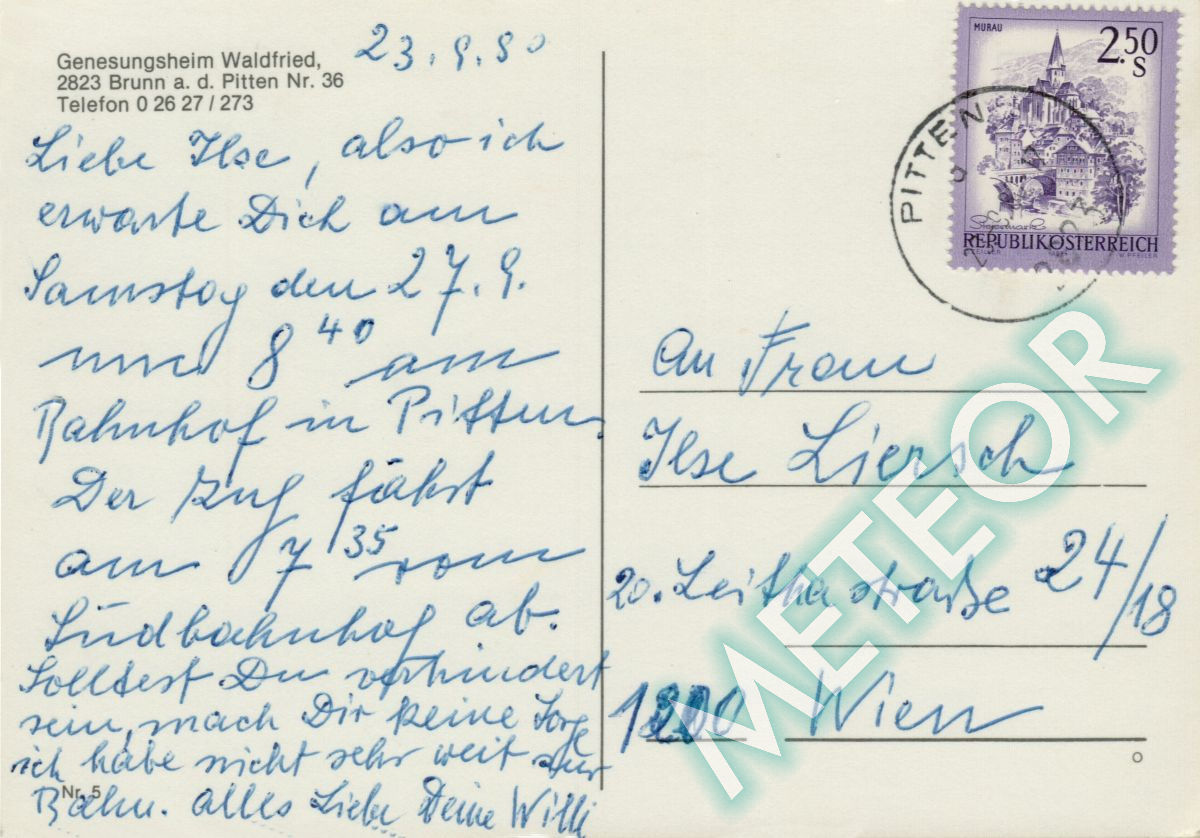 Genesungsheim Waldfried,
2823 Brunn a. d. Pitten Nr. 36
Telefon 0 26 27 / 273
23. 9. 80
Liebe Ilse, also ich
erwarte Dich am
Samstag den 27. 9.
um 8 40 am
Bahnhof in Pitten.
Der Zug fährt
um 7 35 vom
Südbahnhof ab.
Solltest Du verhindert
sein, mach Dir keine Sorge
ich habe nicht sehr weit zur
Bahn. Alles Liebe Deine Willi
Nr. 5
MURAU
2.50
S
Steiermark
REPUBLIK ÖSTERREICH
W. PFEILER
PITTEN
An Frau
Ilse Liersch
20. Leithastraße 24/18
1200 Wien
METEOR